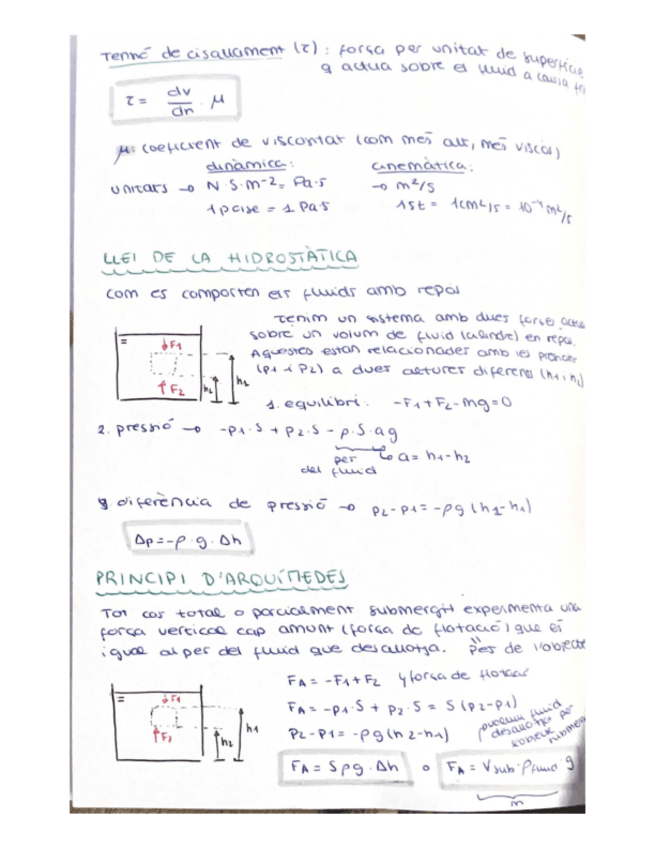 Tensió de cisallament (τ): força per unitat de superfície
q actua sobre el fluid a causa
τ = dv/dn · μ
μ: coeficient de viscositat (com més alt, més viscós)
dinàmica: cinemàtica:
unitats → N·S·m⁻² = Pa·s → m²/s
1 poise = 1 Pa·s 1 St = 1cm²/s = 10⁻⁴ m²/s
LLEI DE LA HIDROSTÀTICA
com es comporten els fluids amb repòs
Tenim un sistema amb dues forces actua
sobre un volum de fluid (cilindre) en repòs.
Aquestes estan relacionades amb les pressions
(p1 i p2) a dues altures diferents (h1 i h2)
↓F1
↑F2
h2
h1
1. equilibri: -F1+F2-mg=0
2. pressió → -p1·S + p2·S - ρ·S·a g
pes del fluid
a = h1-h2
3. diferència de pressió → p2-p1 = -ρg(h2-h1)
Δp = -ρ·g·Δh
PRINCIPI D'ARQUÍMEDES
Tot cos total o parcialment submergit experimenta una
força vertical cap amunt (força de flotació) que és
igual al pes del fluid que desallotja. pes de l'objecte
↓F1
↑F2
h2
h1
FA = -F1+F2 força de flotació
FA = -p1·S + p2·S = S(p2-p1)
p2-p1 = -ρg(h2-h1)
fluid
desallotja per
FA = Sρg·Δh o FA = Vsub·ρfluid·g
m